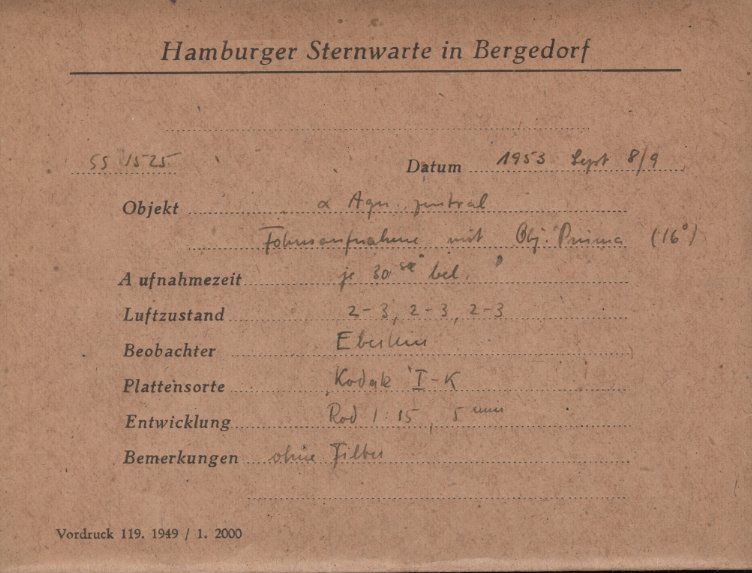 Hamburger Sternwarte in Bergedorf
SS 1525 Datum 1953 Sept 8/9
Objekt α Aqu. zentral
mit Obj. Prisma (16°)
Aufnahmezeit je 30 sec bel.
Luftzustand 2-3, 2-3, 2-3
Beobachter
Plattensorte Kodak I-K
Entwicklung Rod 1:15, 5 min
Bemerkungen ohne Filter
Vordruck 119. 1949 / 1. 2000